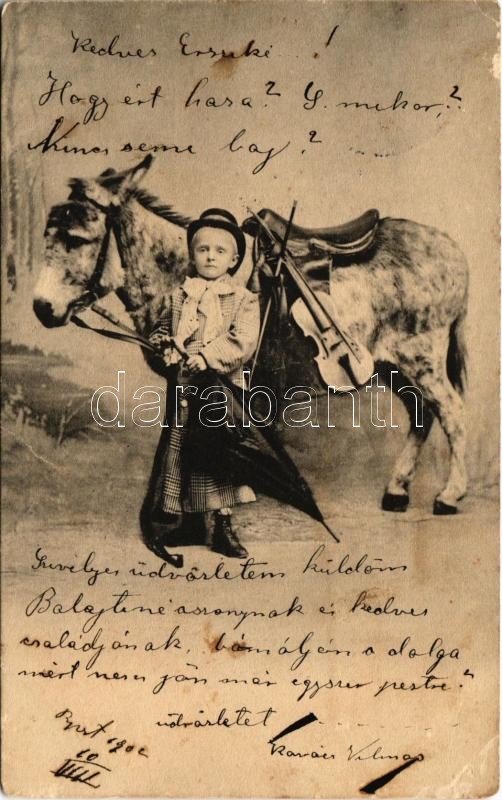 Kedves Erzsike ... !
Hogy ért haza? S. mikor,?
Nincs seme baj?
darabanth
Szivélyes üdvözletem küldöm
Balajtiné asszonynak és kedves
családjának, bámúljön a dolga
mért nem jön már egyszer pestre?
üdvözletet
Kovács Vilmos
Bpest 1902
10